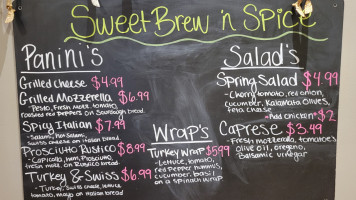 Sweet Brew 'n Spice
Panini's
Grilled Cheese $4.99
Grilled Mozzerella $6.99
- Pesto, Fresh Mozz, tomato,
roasted red peppers on Sourdough bread
Spicy Italian $7.99
- Salami, Ham,
Swiss cheese on Italian bread
Prosciutto Rustico $8.99
- Capicolla, ham, Prosciutto,
fresh mozz on Rustico bread
Turkey & Swiss $6.99
- Turkey, Swiss cheese,
tomato, mayo on Italian bread
Wrap's
Turkey Wrap $5.99
- Lettuce, tomato,
red pepper hummus,
cucumber, basil
on a spinach wrap
Salad's
Spring Salad $4.99
- Cherry tomato, red onion,
cucumber, Kalamata Olives,
feta cheese
- Add chicken $2
Caprese $3.49
- Fresh mozzarella, tomatoes,
olives, oregano,
Balsamic vinegar